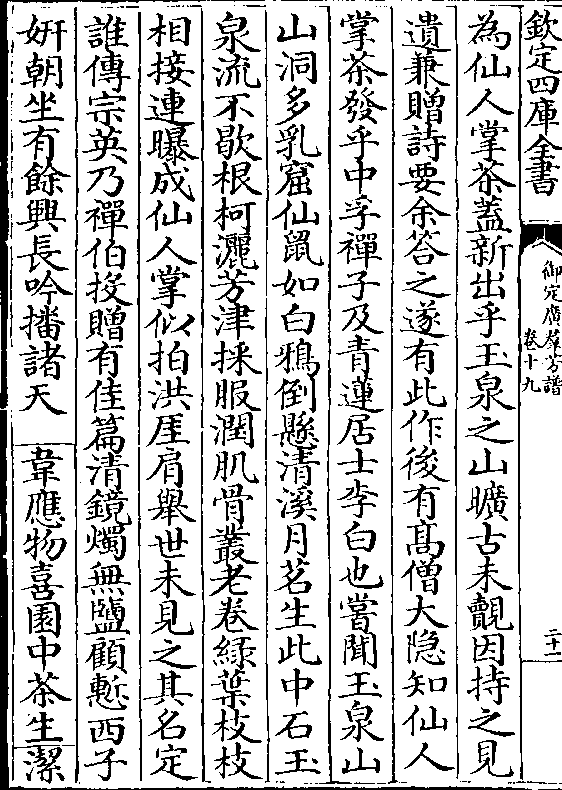 欽定四庫全書
御定廣羣芳譜
卷十九
二十一
為仙人掌茶蓋新出乎玉泉之山曠古未覿因持之見
遺兼贈詩要余荅之遂有此作後有髙僧大隐知仙人
掌茶發乎中孚禪子及青蓮居士李白也嘗聞玉泉山
山洞多乳窟仙鼠如白鴉倒懸清溪月茗生此中石玉
泉流不歇根柯灑芳津採服潤肌骨叢老卷緑葉枝枝
相接連曝成仙人掌似拍洪厓肩舉世未見之其名定
誰傳宗英乃禪伯投贈有佳篇清鏡燭無鹽顧慙西子
妍朝坐有餘興長吟播諸天 韋應物喜園中茶生潔